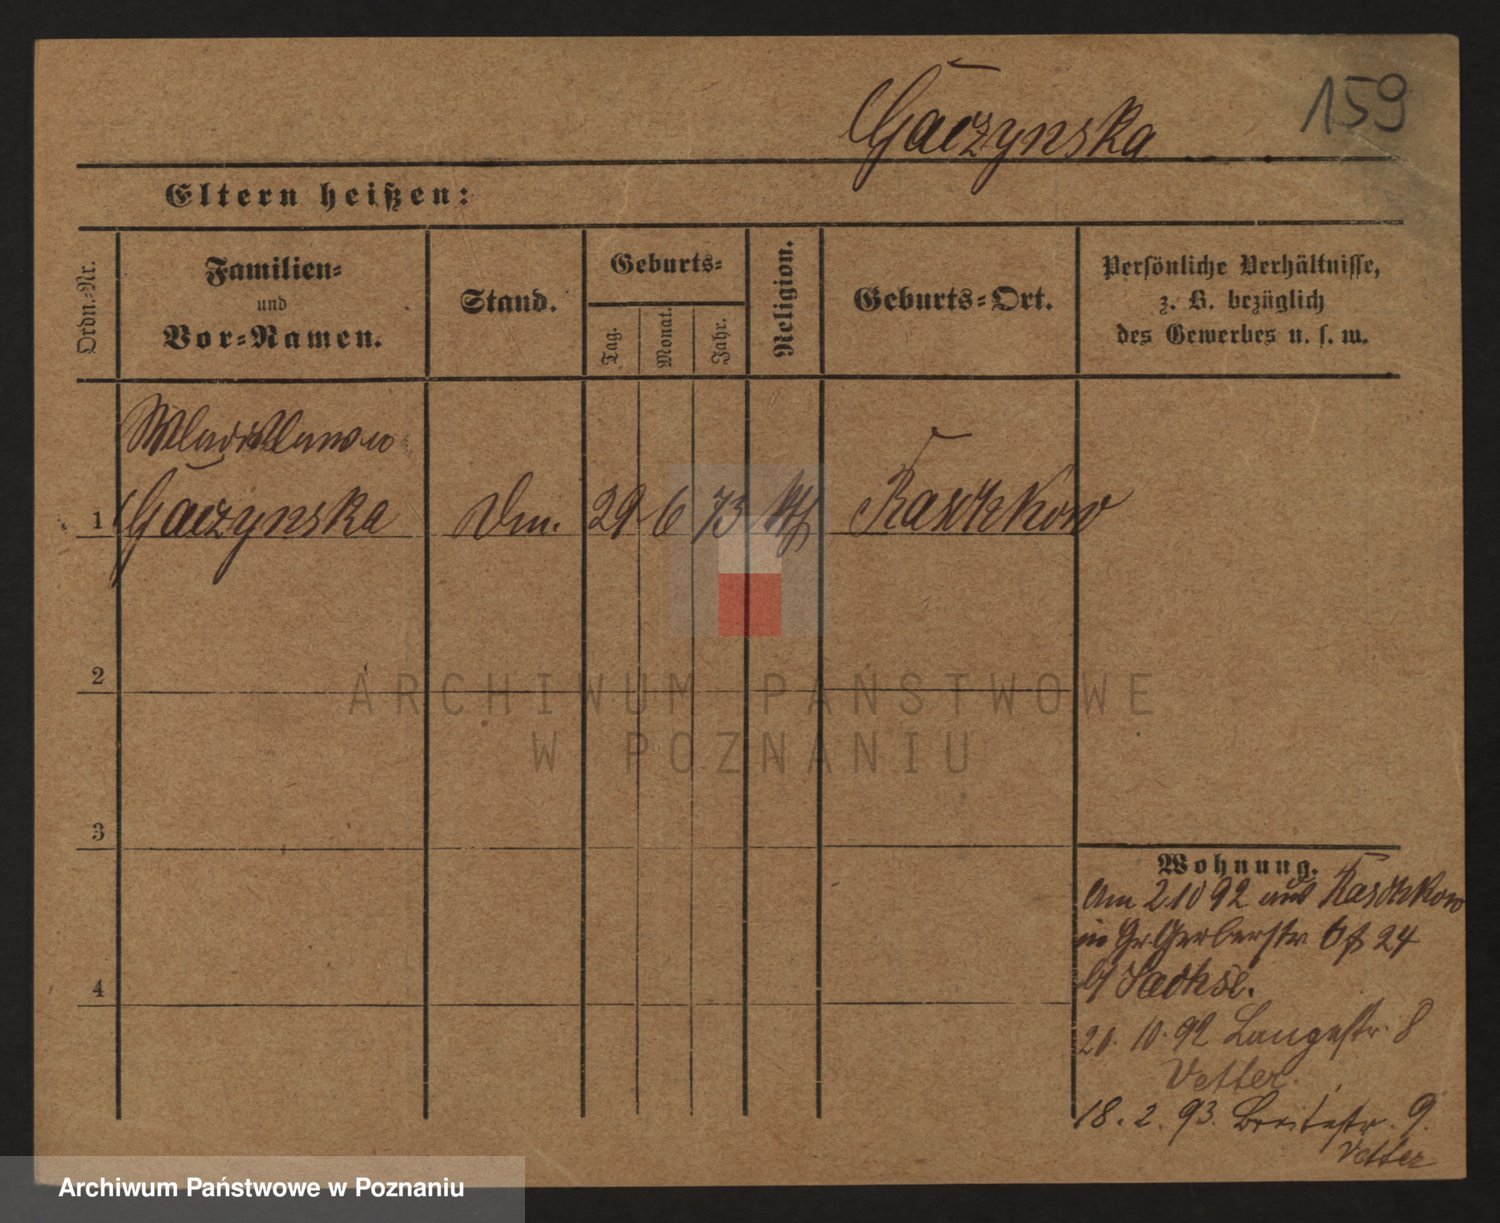 159
Gaczynska
Eltern heißen:
Ordn.-Nr.
Familien-
und
Vor-Namen.
Stand.
Geburts-
Tag.
Monat.
Jahr.
Religion.
Geburts-Ort.
Persönliche Verhältnisse,
z. B. bezüglich
des Gewerbes u. s. w.
Wladislawa
1 Gaczynska 29 6 73 Raschkow
2
3
4
Wohnung.
Am 2 10 92 aus Raschkow
in Gr. Gerberstr 24
b/ Sachse.
21. 10. 92 Langestr. 8
Vetter.
18. 2. 93. Breitestr. 9.
Vetter
ARCHIWUM PAŃSTWOWE
W POZNANIU
Archiwum Państwowe w Poznaniu